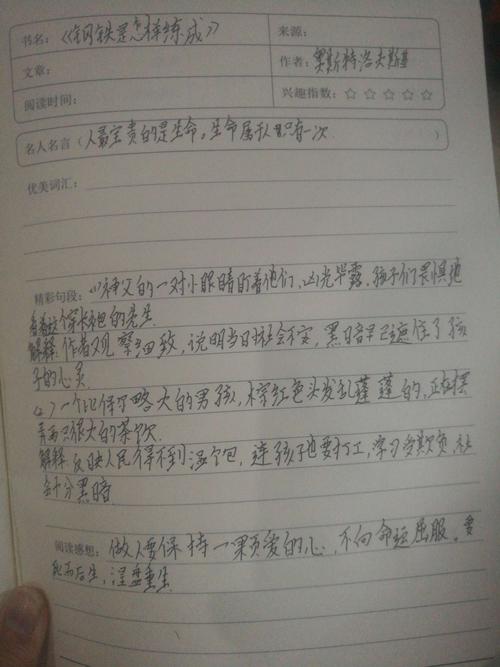 书名：《钢铁是怎样练成》
来源：
文章：
作者：奥斯特洛夫斯基
阅读时间：
兴趣指数：☆ ☆ ☆ ☆ ☆
名人名言（人最宝贵的是生命。生命属于人只有一次）
优美词汇：
精彩句段：(1)神父的一对小眼睛盯着他们，凶光毕露，孩子们畏惧地
看着这个穿长袍的先生
解释：作者观察细致，说明当日社会不安，黑暗早已遮住了孩
子的心灵
(2)一个比保尔略大的男孩，棕红色头发乱蓬蓬的，正在摆
弄两只很大的茶炊
解释 反映人民得不到温饱，连孩子也要打工，受欺负 社
会十分黑暗
阅读感想：做人要保持一颗爱的心，不向命运屈服。要
死而后生，涅盘重生